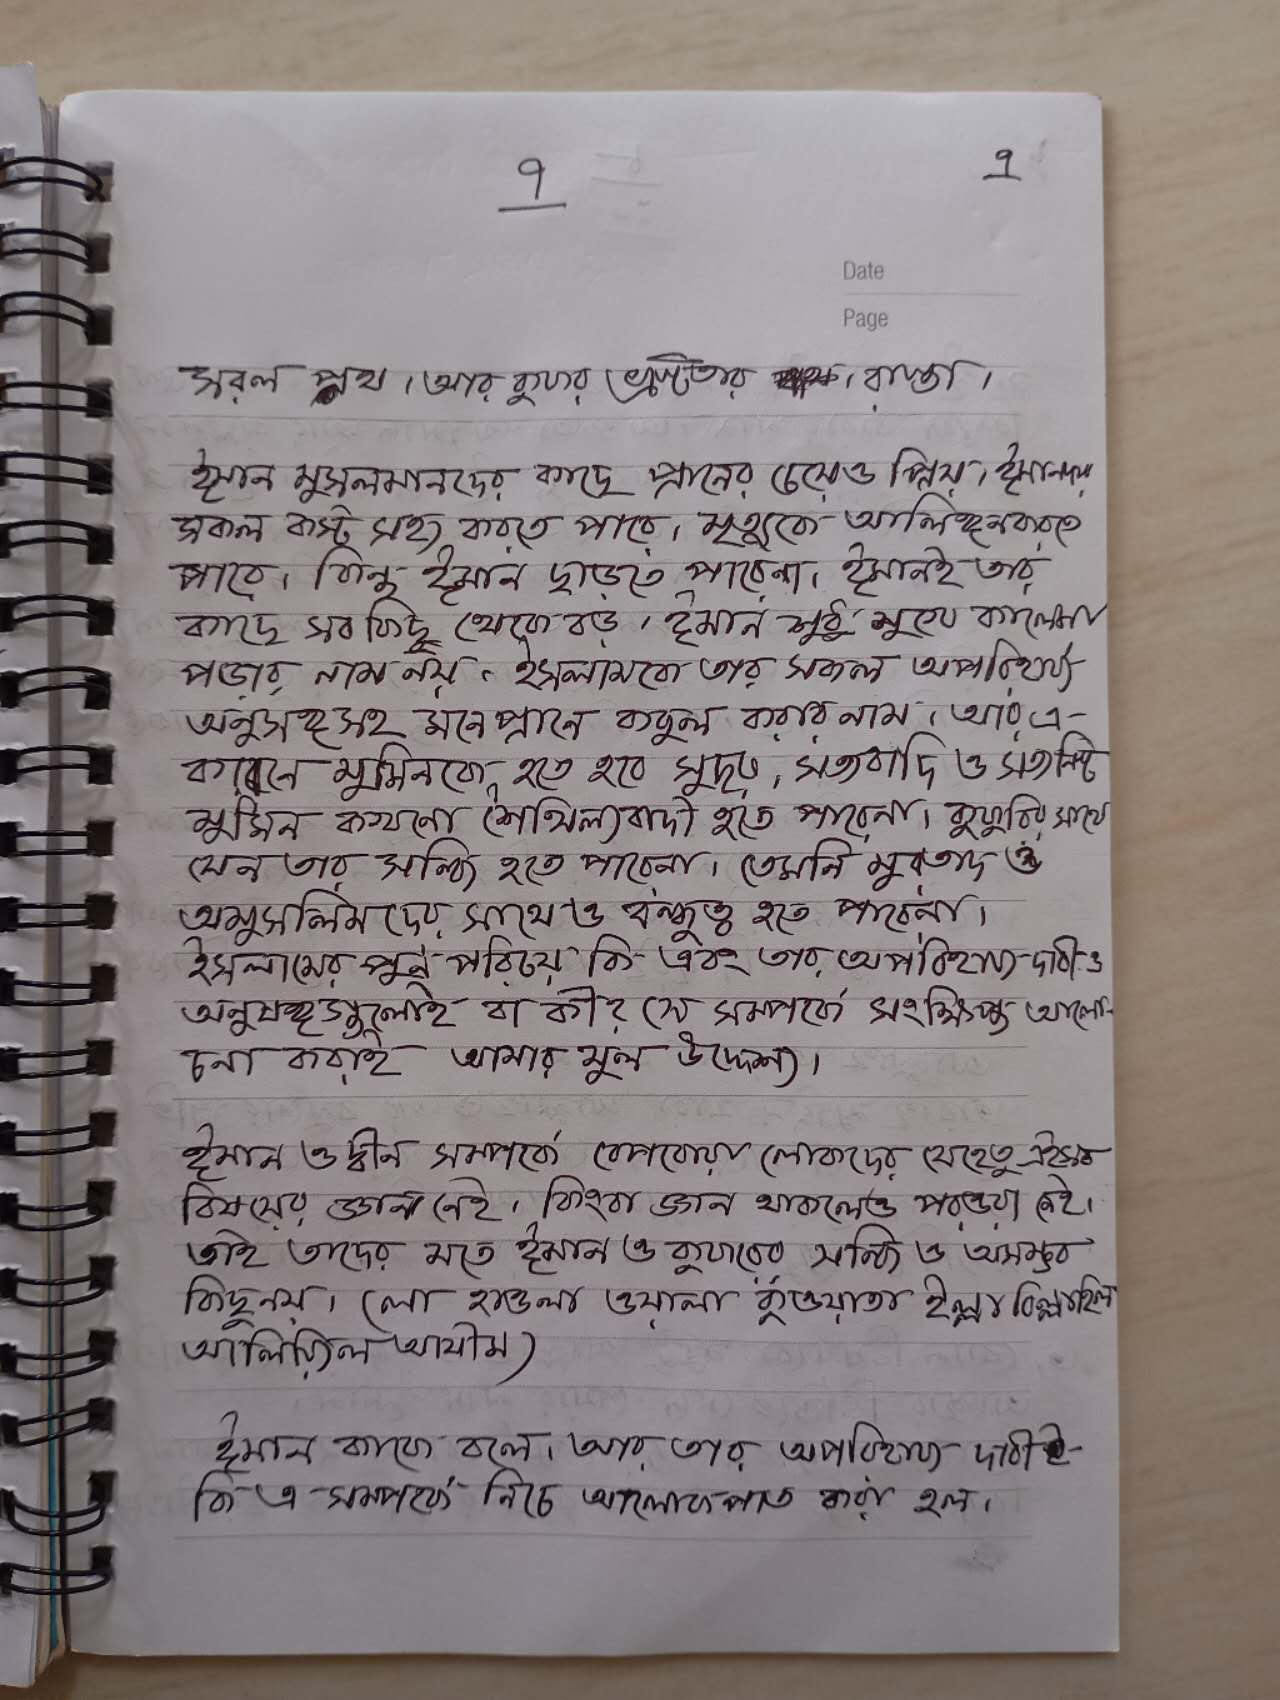 ৭
৭
Date
Page
সরল পথ। আর কুফর ভ্রষ্টতার রাস্তা।
ঈমান মুসলমানদের কাছে প্রানের চেয়েও প্রিয়। ঈমানদার
সকল কস্ট সহ্য করতে পারে। মৃত্যুকে আলিঙ্গন করতে
পারে। কিন্তু ঈমান ছাড়তে পারেনা। ঈমানই তার
কাছে সবকিছু থেকে বড়। ঈমান শুধু মুখে কালেমা
পড়ার নাম নয়। ইসলামকে তার সকল অপরিহার্য
অনুসঙ্গসহ মনেপ্রানে কবুল করার নাম। আর এ-
কারনে মুমিনকে হতে হবে সুদৃঢ়, সত্যবাদি ও সত্যনিষ্ট
মুমিন কখনো শৈথিল্যবাদী হতে পারেনা। কুফুরির সাথে
যেন তার সন্ধি হতে পারেনা। তেমনি মুরতাদ ও
অমুসলিমদের সাথেও বন্ধুত্ব হতে পারেনা।
ইসলামের পুর্ন পরিচয় কি এবং তার অপরিহার্য দাবী ও
অনুষঙ্গগুলোই বা কী? সে সম্পর্কে সংক্ষিপ্ত আলো-
চনা করাই আমার মুল উদ্দেশ্য।
ঈমান ও দ্বীন সম্পর্কে বেপরোয়া লোকদের যেহেতু এইসব
বিষয়ের জ্ঞান নেই। কিংবা জ্ঞান থাকলেও পরওয়া নেই।
তাই তাদের মতে ঈমান ও কুফরের সন্ধি ও অসম্ভব
কিছু নয়। (লা হাওলা ওয়ালা কুওয়াতা ইল্লা বিল্লাহিল
আলিয়্যিল আযীম)
ঈমান কাকে বলে। আর তার অপরিহার্য দাবী-
কি এ সম্পর্কে নিচে আলোকপাত করা হল।